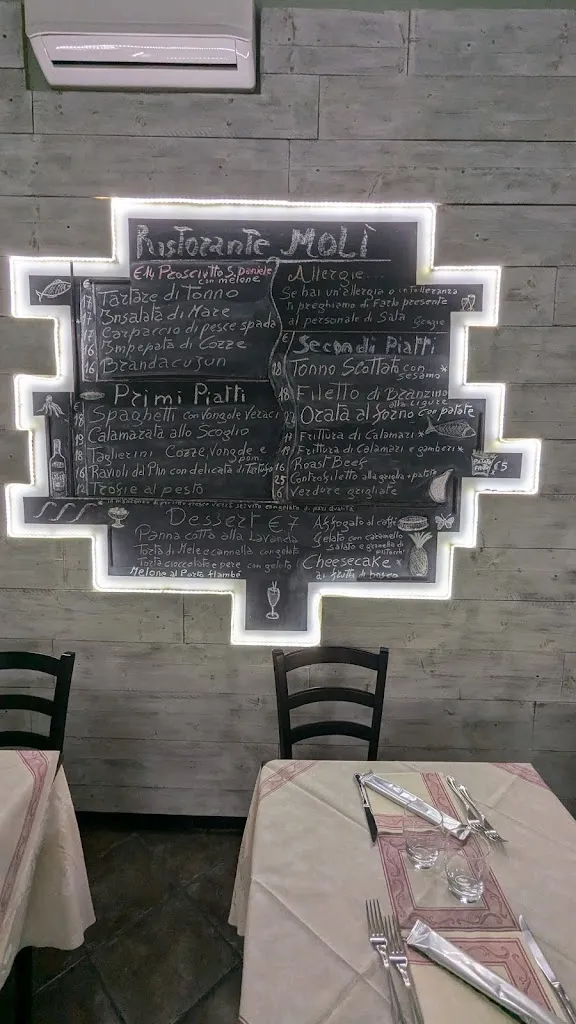 Ristorante MOLÌ
€14 Prosciutto S. Daniele
con melone
€
17 Tartare di Tonno
17 Insalata di Mare
17 Carpaccio di pesce spada
16 Impepata di Cozze
16 Brandacujun
Allergie...
Se hai un'allergia o intolleranza
ti preghiamo di farlo presente
al personale di Sala
Grazie
Primi Piatti
€
18 Spaghetti con vongole Veraci
19 Calamarata allo Scoglio
18 Taglierini Cozze, Vongole e
pom.
16 Ravioli del Plin con delicata di Tartufo
12 Trofie al pesto
€ Secondi Piatti
Tonno Scottato con
sesamo
18 Filetto di Branzino
alla Ligure
Orata al forno con patate
Frittura di Calamari *
19 Frittura di Calamari e gamberi *
16 Roast Beef
25 Controfiletto alla griglia e patate
Verdure grigliate
PATATE
FRITTE €5
Dessert €7
Panna cotta alla Lavanda
Torta di Mele e cannella con gelato
Torta cioccolato e pere con gelato
Melone al Porto flambé
Affogato al caffè
Gelato con caramello
salato e granella di
pistacchi
Cheesecake *
ai frutti di bosco